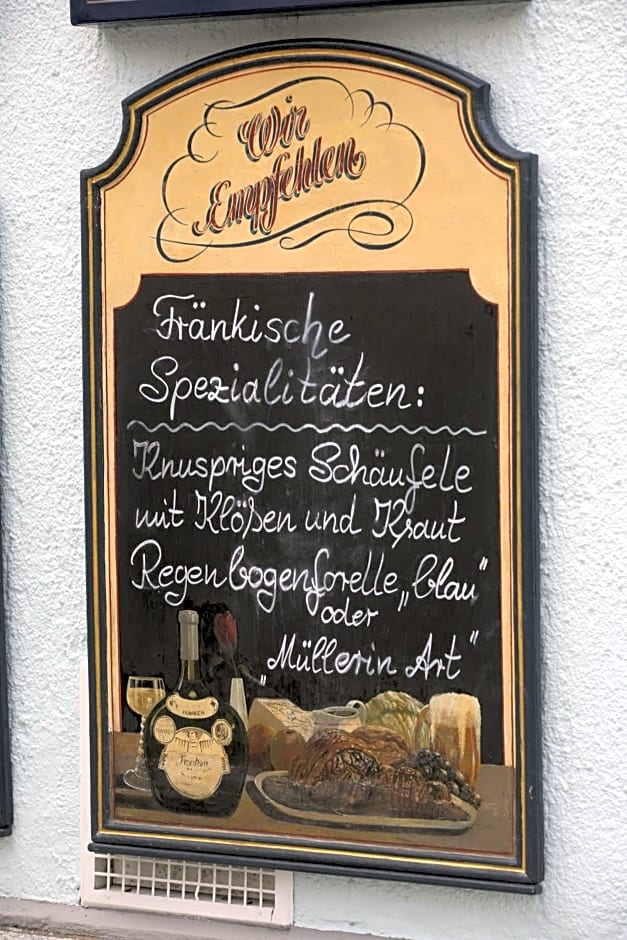 Wir
Empfehlen
Fränkische
Spezialitäten:
Knuspriges Schäufele
mit Klößen und Kraut
Regenbogenforelle „blau"
oder
„Müllerin Art"
FRANKEN
Franken